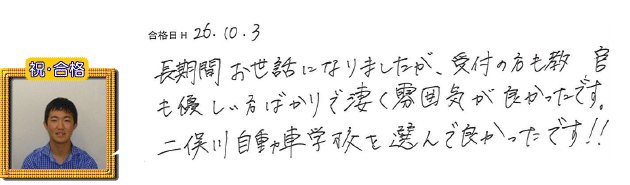 合格日 H 26.10.3
祝・合格
長期間お世話になりましたが、受付の方も教官
も優しい方ばかりで凄く雰囲気が良かったです。
二俣川自動車学校を選んで良かったです!!